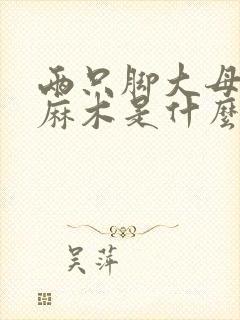 两只脚大母
麻木是什麼
吴萍